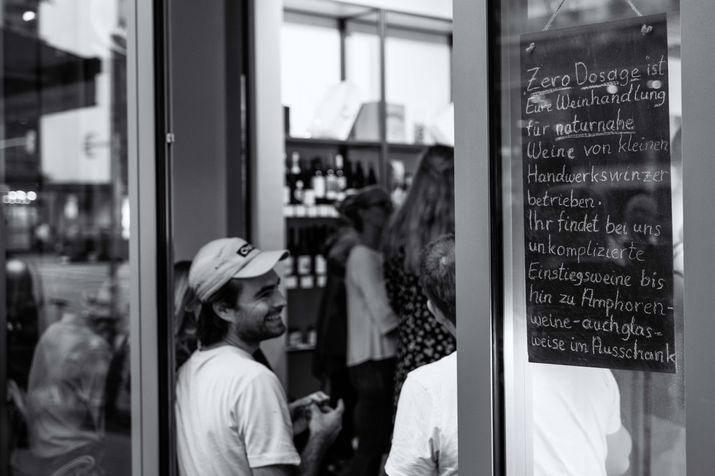 Zero Dosage ist
Eure Weinhandlung
für naturnahe
Weine von kleinen
Handwerkswinzer
betrieben.
Ihr findet bei uns
unkomplizierte
Einstiegsweine bis
hin zu Amphoren-
weine-auchglas-
weise im Ausschank